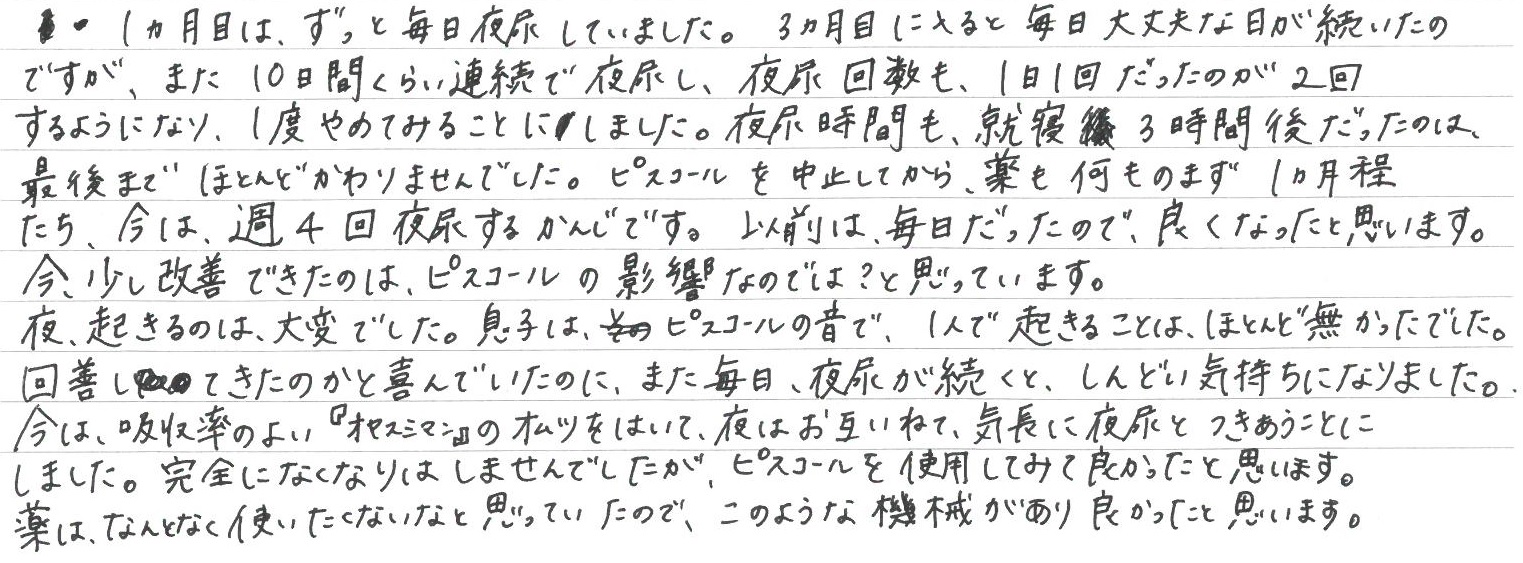 ・1ヵ月目は、ずっと毎日夜尿していました。3ヵ月目に入ると毎日大丈夫な日が続いたの
ですが、また10日間くらい連続で夜尿し、夜尿回数も、1日1回だったのが2回
するようになり、1度やめてみることにしました。夜尿時間も、就寝3時間後だったのは、
最後までほとんどかわりませんでした。ピスコールを中止してから、薬も何ものまず1ヵ月程
たち、今は、週4回夜尿するかんじです。以前は、毎日だったので、良くなったと思います。
今、少し改善できたのは、ピスコールの影響なのでは?と思っています。
夜、起きるのは、大変でした。息子は、ピスコールの音で、1人で起きることは、ほとんど無かったでした。
回善してきたのかと喜んでいたのに、また毎日、夜尿が続くと、しんどい気持ちになりました。
今は、吸収率のよい『オヤスミマン』のオムツをはいて、夜はお互いねて、気長に夜尿とつきあうことに
しました。完全になくなりはしませんでしたが、ピスコールを使用してみて良かったと思います。
薬は、なんとなく使いたくないなと思っていたので、このような機械があり良かったと思います。